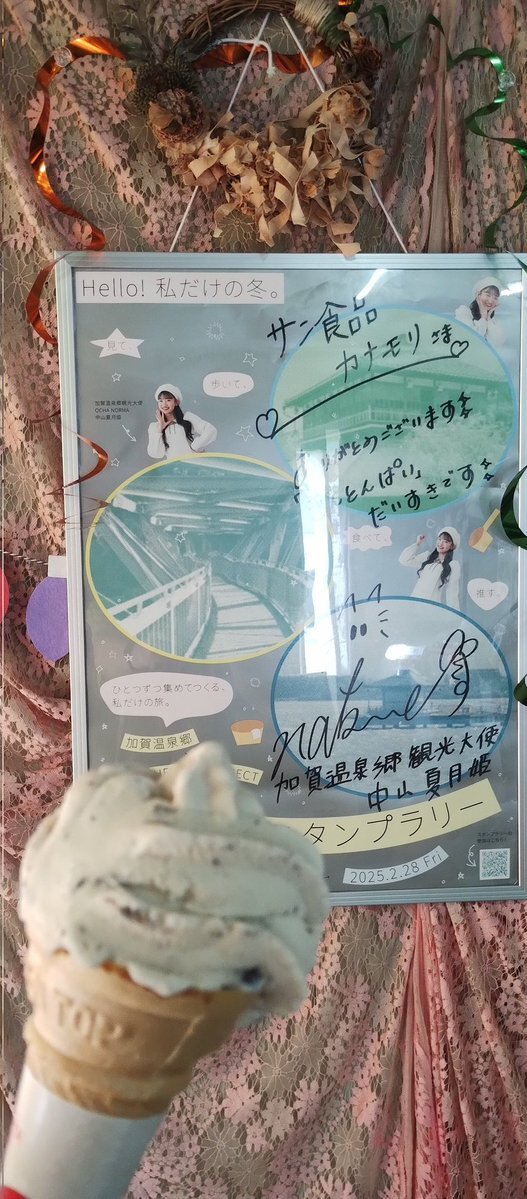 Hello! 私だけの冬。
見て、
歩いて、
加賀温泉郷観光大使
OCHA NORMA
中山夏月姫
サン食品
カナモリさま
ありがとうございます
とんぱい」
だいすきです
食べて、
推す。
ひとつずつ集めてつくる、
私だけの旅。
加賀温泉郷
ECT
加賀温泉郷観光大使
中山夏月姫
タンプラリー
2025.2.28 Fri
TOP